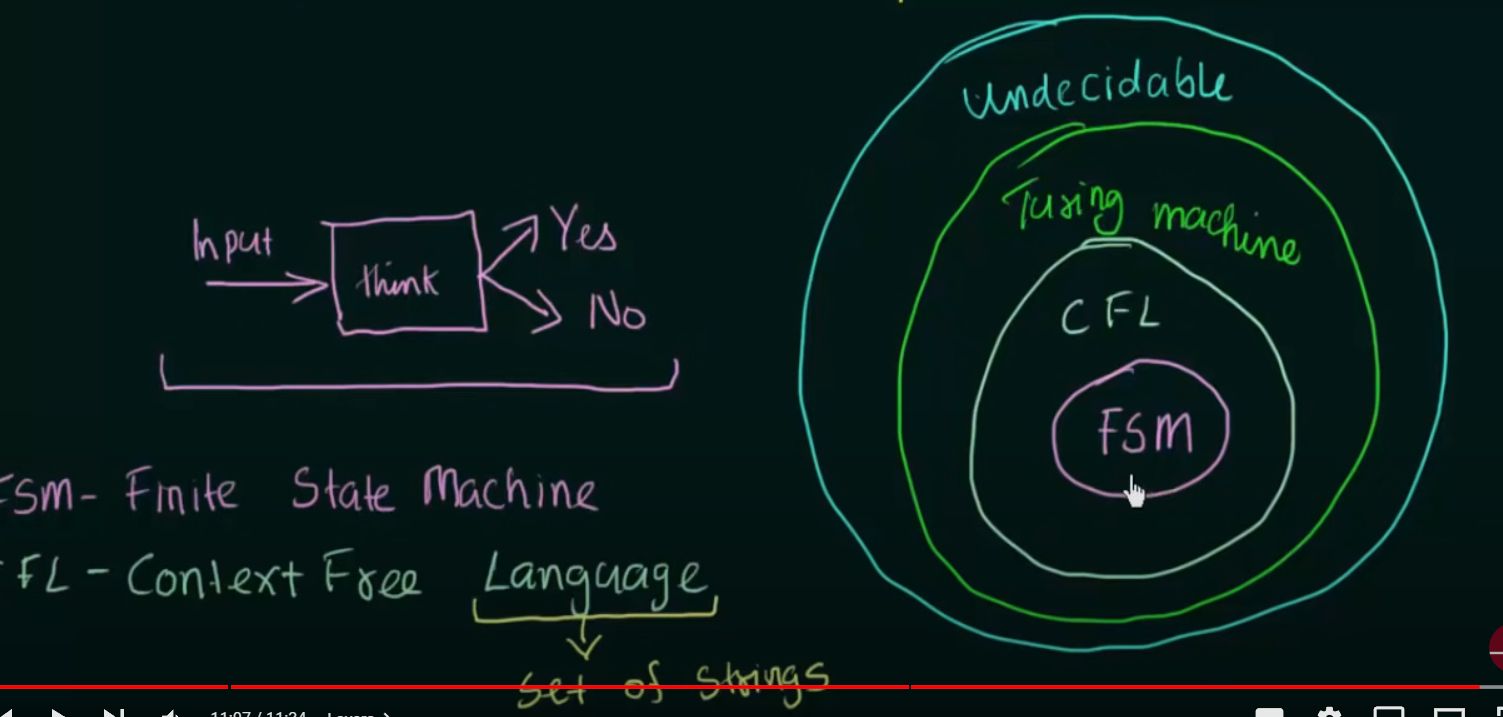 Undecidable
Turing machine
CFL
FSM
Input
think
Yes
No
FSM- Finite State Machine
FL - Context Free Language
Set of Strings
11:07 / 11:34